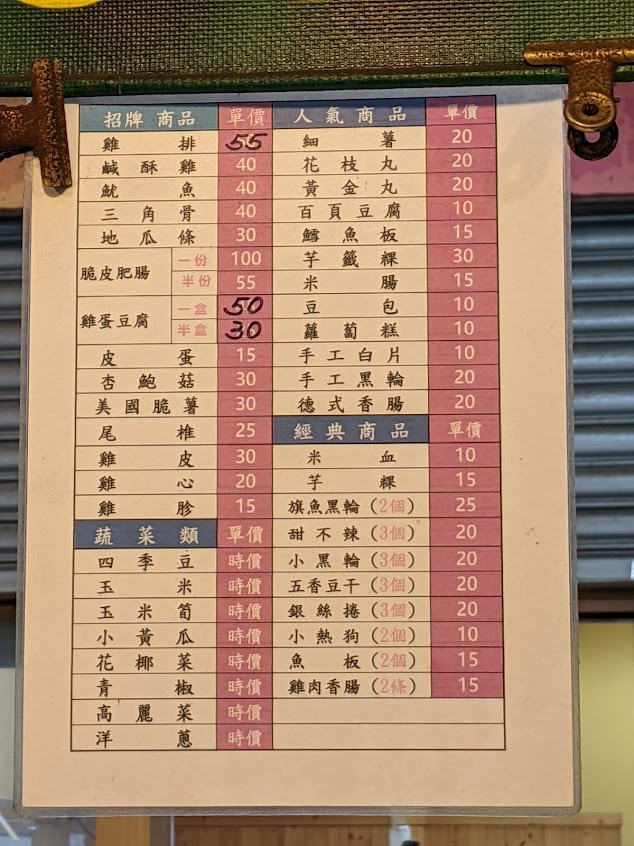 招牌商品 單價
雞排 55
鹹酥雞 40
魷魚 40
三角骨 40
地瓜條 30
脆皮肥腸 一份 100
半份 55
雞蛋豆腐 一盒 50
半盒 30
皮蛋 15
杏鮑菇 30
美國脆薯 30
尾椎 25
雞皮 30
雞心 20
雞胗 15
蔬菜類 單價
四季豆 時價
玉米 時價
玉米筍 時價
小黃瓜 時價
花椰菜 時價
青椒 時價
高麗菜 時價
洋蔥 時價
人氣商品 單價
細薯 20
花枝丸 20
黃金丸 20
百頁豆腐 10
鱈魚板 15
芋籤粿 30
米腸 15
豆包 10
蘿蔔糕 10
手工白片 10
手工黑輪 20
德式香腸 20
經典商品 單價
米血 10
芋粿 15
旗魚黑輪（2個） 25
甜不辣（3個） 20
小黑輪（3個） 20
五香豆干（3個） 20
銀絲捲（3個） 20
小熱狗（2個） 10
魚板（2個） 15
雞肉香腸（2條） 15